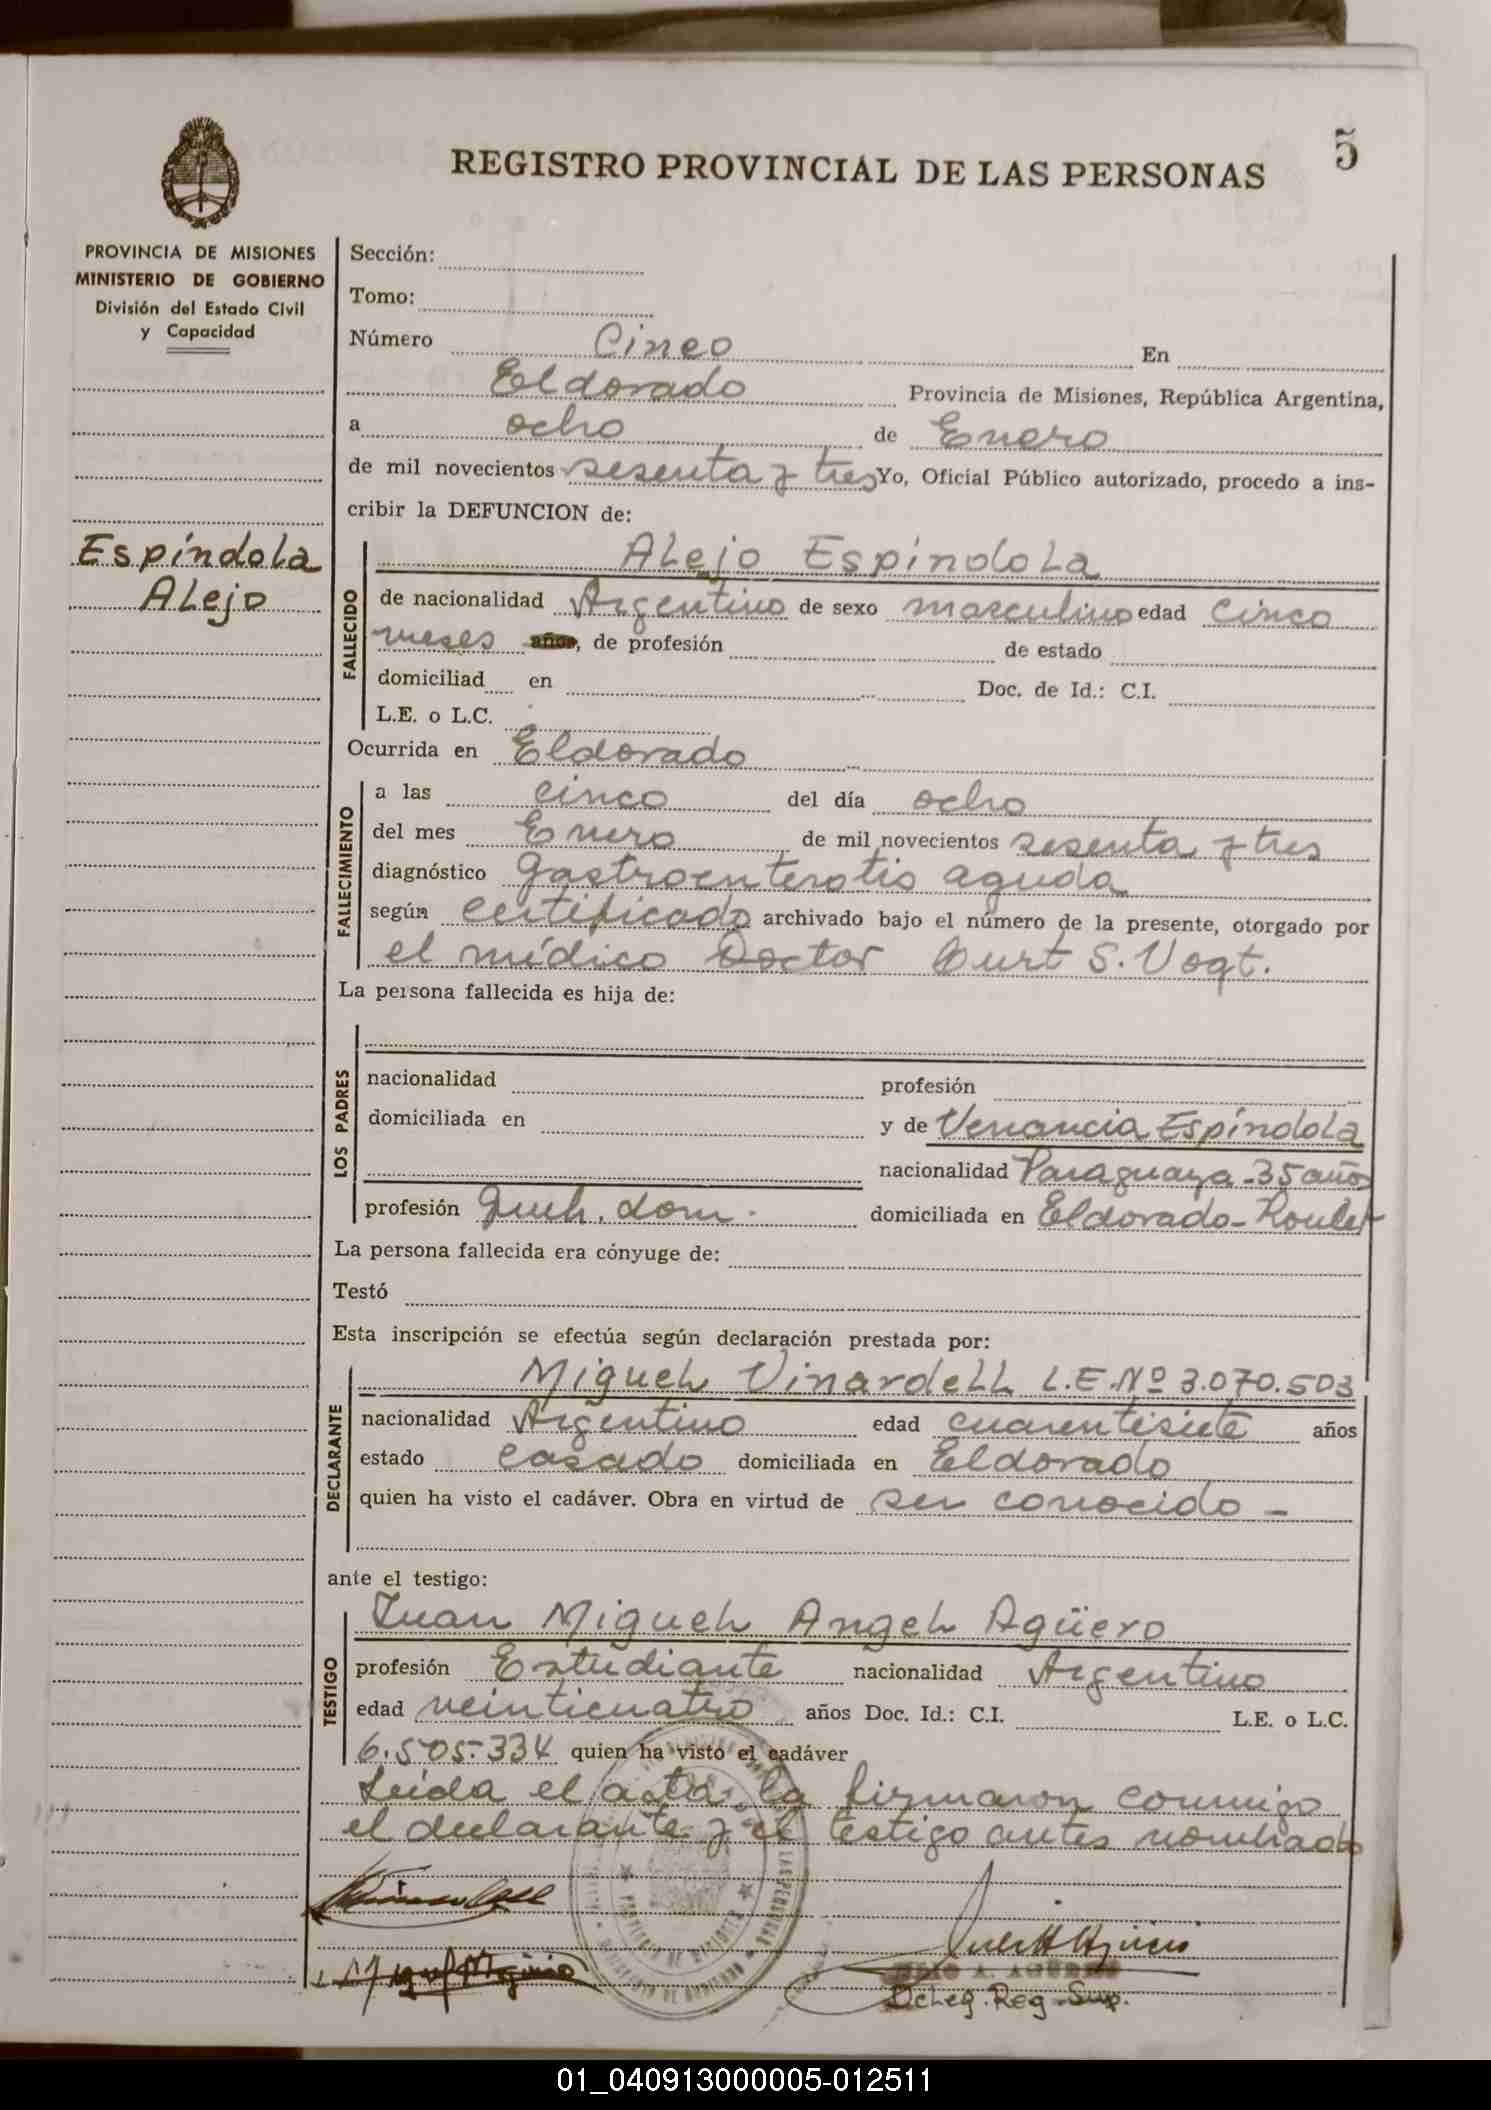 5
REGISTRO PROVINCIAL DE LAS PERSONAS
PROVINCIA DE MISIONES
MINISTERIO DE GOBIERNO
División del Estado Civil
y Capacidad
Espíndola
Alejo
Sección:
Tomo:
Número Cinco En
Eldorado Provincia de Misiones, República Argentina,
a ocho de Enero
de mil novecientos sesenta y tres Yo, Oficial Público autorizado, procedo a ins-
cribir la DEFUNCION de:
FALLECIDO
Alejo Espíndola
de nacionalidad Argentino de sexo masculino edad cinco
meses años, de profesión de estado
domiciliad en Doc. de Id.: C.I.
L.E. o L.C.
Ocurrida en Eldorado
FALLECIMIENTO
a las cinco del día ocho
del mes Enero de mil novecientos sesenta y tres
diagnóstico gastroenterotis aguda
según certificado archivado bajo el número de la presente, otorgado por
el médico Doctor Curt S. Vogt.
La persona fallecida es hija de:
LOS PADRES
nacionalidad profesión
domiciliada en y de Venancia Espíndola
nacionalidad Paraguaya - 35 años
profesión dom. domiciliada en Eldorado -
La persona fallecida era cónyuge de:
Testó
Esta inscripción se efectúa según declaración prestada por:
DECLARANTE
Miguel Vinardell L.E.Nº 3.070.503
nacionalidad Argentino edad cuarentisiete años
estado casado domiciliada en Eldorado
quien ha visto el cadáver. Obra en virtud de ser conocido -
ante el testigo:
TESTIGO
Juan Miguel Angel Agüero
profesión Estudiante nacionalidad Argentino
edad veinticuatro años Doc. Id.: C.I. L.E. o L.C.
6.505.334 quien ha visto el cadáver
Leída el acta, la firmaron conmigo
el declarante y el testigo antes nombrado
A. AGÜERO
Deleg. Reg. Sup.
01_040913000005-012511